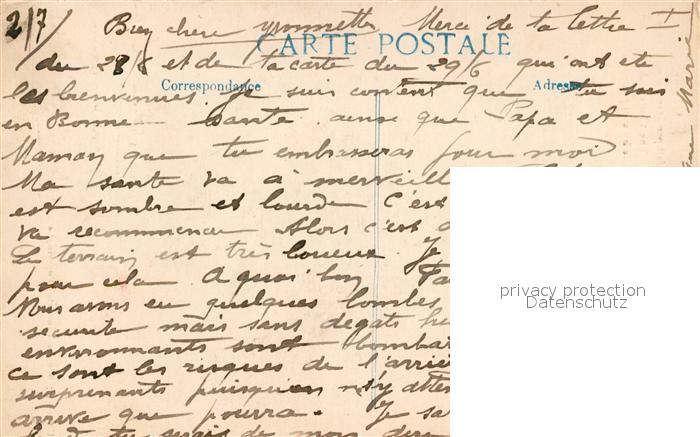 2/7 Bien chere Yvonnette Merci de ta lettre
CARTE POSTALE
du 28/6 et de ta carte du 29/6 qui ont ete
Correspondance
Adresse
les bienvenues. Je suis content que tu sois
en Bonne sante ainsi que Papa et
Maman que tu embrasseras pour moi
Ma sante va à merveill
est sombre et lourde C'est
va recommence Alors c'est
Le terrain est très boueux. Je
pour cela. A quoi bon
Nous avons eu quelques bombes
securite mais sans degats
environnants sont bombar
ce sont les risques de l'arrie
surprenants puisqu'on n'y atten
arrive que pourra. Je
privacy protection
Datenschutz